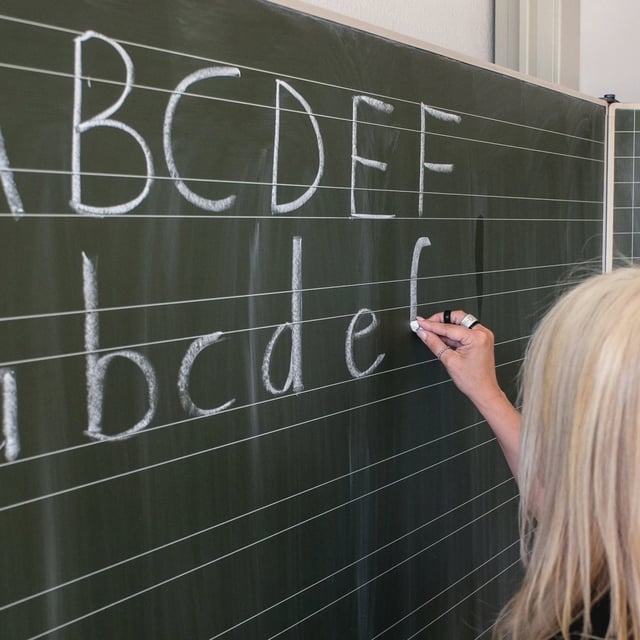 A B C D E F
a b c d e f